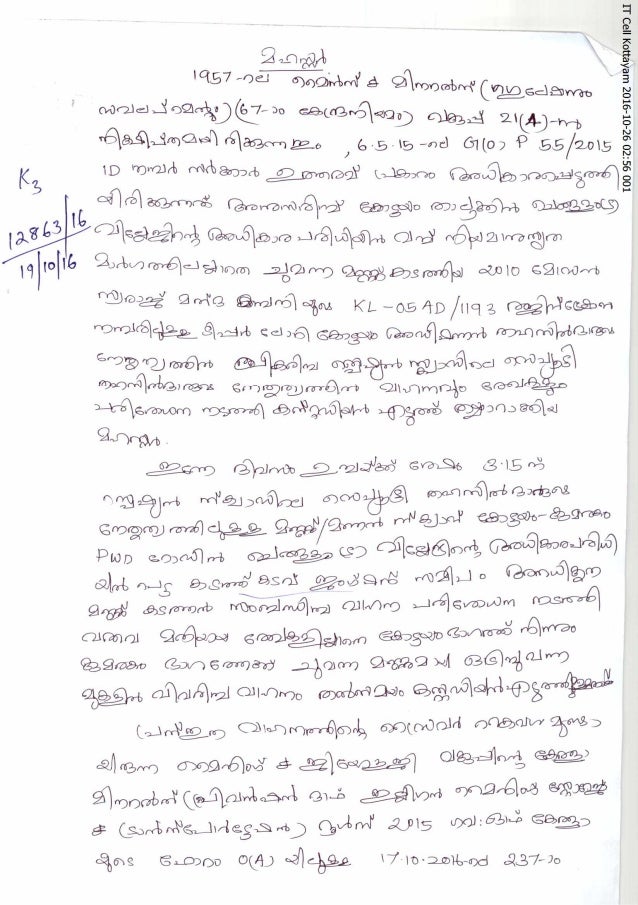 മഹസ്സർ
1957-ലെ മൈൻസ് & മിനറൽസ് (റഗുലേഷനും
ഡവലപ്പ്മെന്റും) (67-ാം കേന്ദ്രനിയമം) വകുപ്പ് 21(4)-ൽ
നിക്ഷിപ്തമായിരിക്കുന്നതും, 6.5.15-ലെ G(O) P 55/2015
ID നമ്പർ സർക്കാർ ഉത്തരവ് പ്രകാരം അധികാരപ്പെടുത്തി
യിരിക്കുന്നത് അനുസരിച്ച് കോട്ടയം താലൂക്കിൽ ചെങ്ങളം
വില്ലേജിന്റെ അധികാര പരിധിയിൽ വച്ച് നിയമാനുസൃത
മാർഗത്തിലല്ലാതെ ചുവന്ന മണ്ണ് കടത്തിയ 2010 മോഡൽ
സ്വരാജ് മസ്ദ കമ്പനിയുടെ KL-05 AD/1193 രജിസ്ട്രേഷൻ
നമ്പരിലുള്ള ടിപ്പർ ലോറി കോട്ടയം അഡീഷണൽ തഹസിൽദാരുടെ
നേതൃത്വത്തിൽ രൂപീകരിച്ച സ്പെഷ്യൽ സ്ക്വാഡിലെ ഡെപ്യൂട്ടി
തഹസിൽദാരുടെ നേതൃത്വത്തിൽ വാഹനവും രേഖകളും
പരിശോധന നടത്തി കസ്റ്റഡിയിൽ എടുത്ത് തയ്യാറാക്കിയ
മഹസ്സർ.
ഇന്നേ ദിവസം ഉച്ചയ്ക്ക് ശേഷം 3.15 ന്
സ്പെഷ്യൽ സ്ക്വാഡിലെ ഡെപ്യൂട്ടി തഹസിൽദാരുടെ
നേതൃത്വത്തിലുള്ള മണ്ണ്/മണൽ സ്ക്വാഡ് കോട്ടയം-കുമരകം
PWD റോഡിൽ ചെങ്ങളം വില്ലേജിന്റെ അധികാരപരിധി
യിൽ പെട്ട കടത്ത് കടവ് ജംഗ്ഷന് സമീപം അനധികൃത
മണ്ണ് കടത്തൽ സംബന്ധിച്ച വാഹന പരിശോധന നടത്തി
വരവെ മതിയായ രേഖകളില്ലാതെ കോട്ടയം ഭാഗത്ത് നിന്നും
കുമരകം ഭാഗത്തേക്ക് ചുവന്ന മണ്ണുമായി ഓടിച്ചുവന്ന
മുകളിൽ വിവരിച്ച വാഹനം തൽസമയം കസ്റ്റഡിയിൽ എടുത്തു
പ്രസ്തുത വാഹനത്തിന്റെ ഡ്രൈവർ കൈവശമുണ്ടാ
യിരുന്ന മൈനിംഗ് & ജിയോളജി വകുപ്പിന്റെ കേരള
മിനറൽസ് (പ്രിവൻഷൻ ഓഫ് ഇല്ലീഗൽ മൈനിംഗ് സ്റ്റോറേജ്
& ട്രാൻസ്പോർട്ടേഷൻ) റൂൾസ് 2015 ഗവ: ഓഫ് കേരള
യുടെ ഫോറം O(A) യിലുള്ള 17.10.2016-ലെ 237-ാം
K3
12863/16
19/10/16
IT Cell Kottayam 2016-10-26 02:56 001